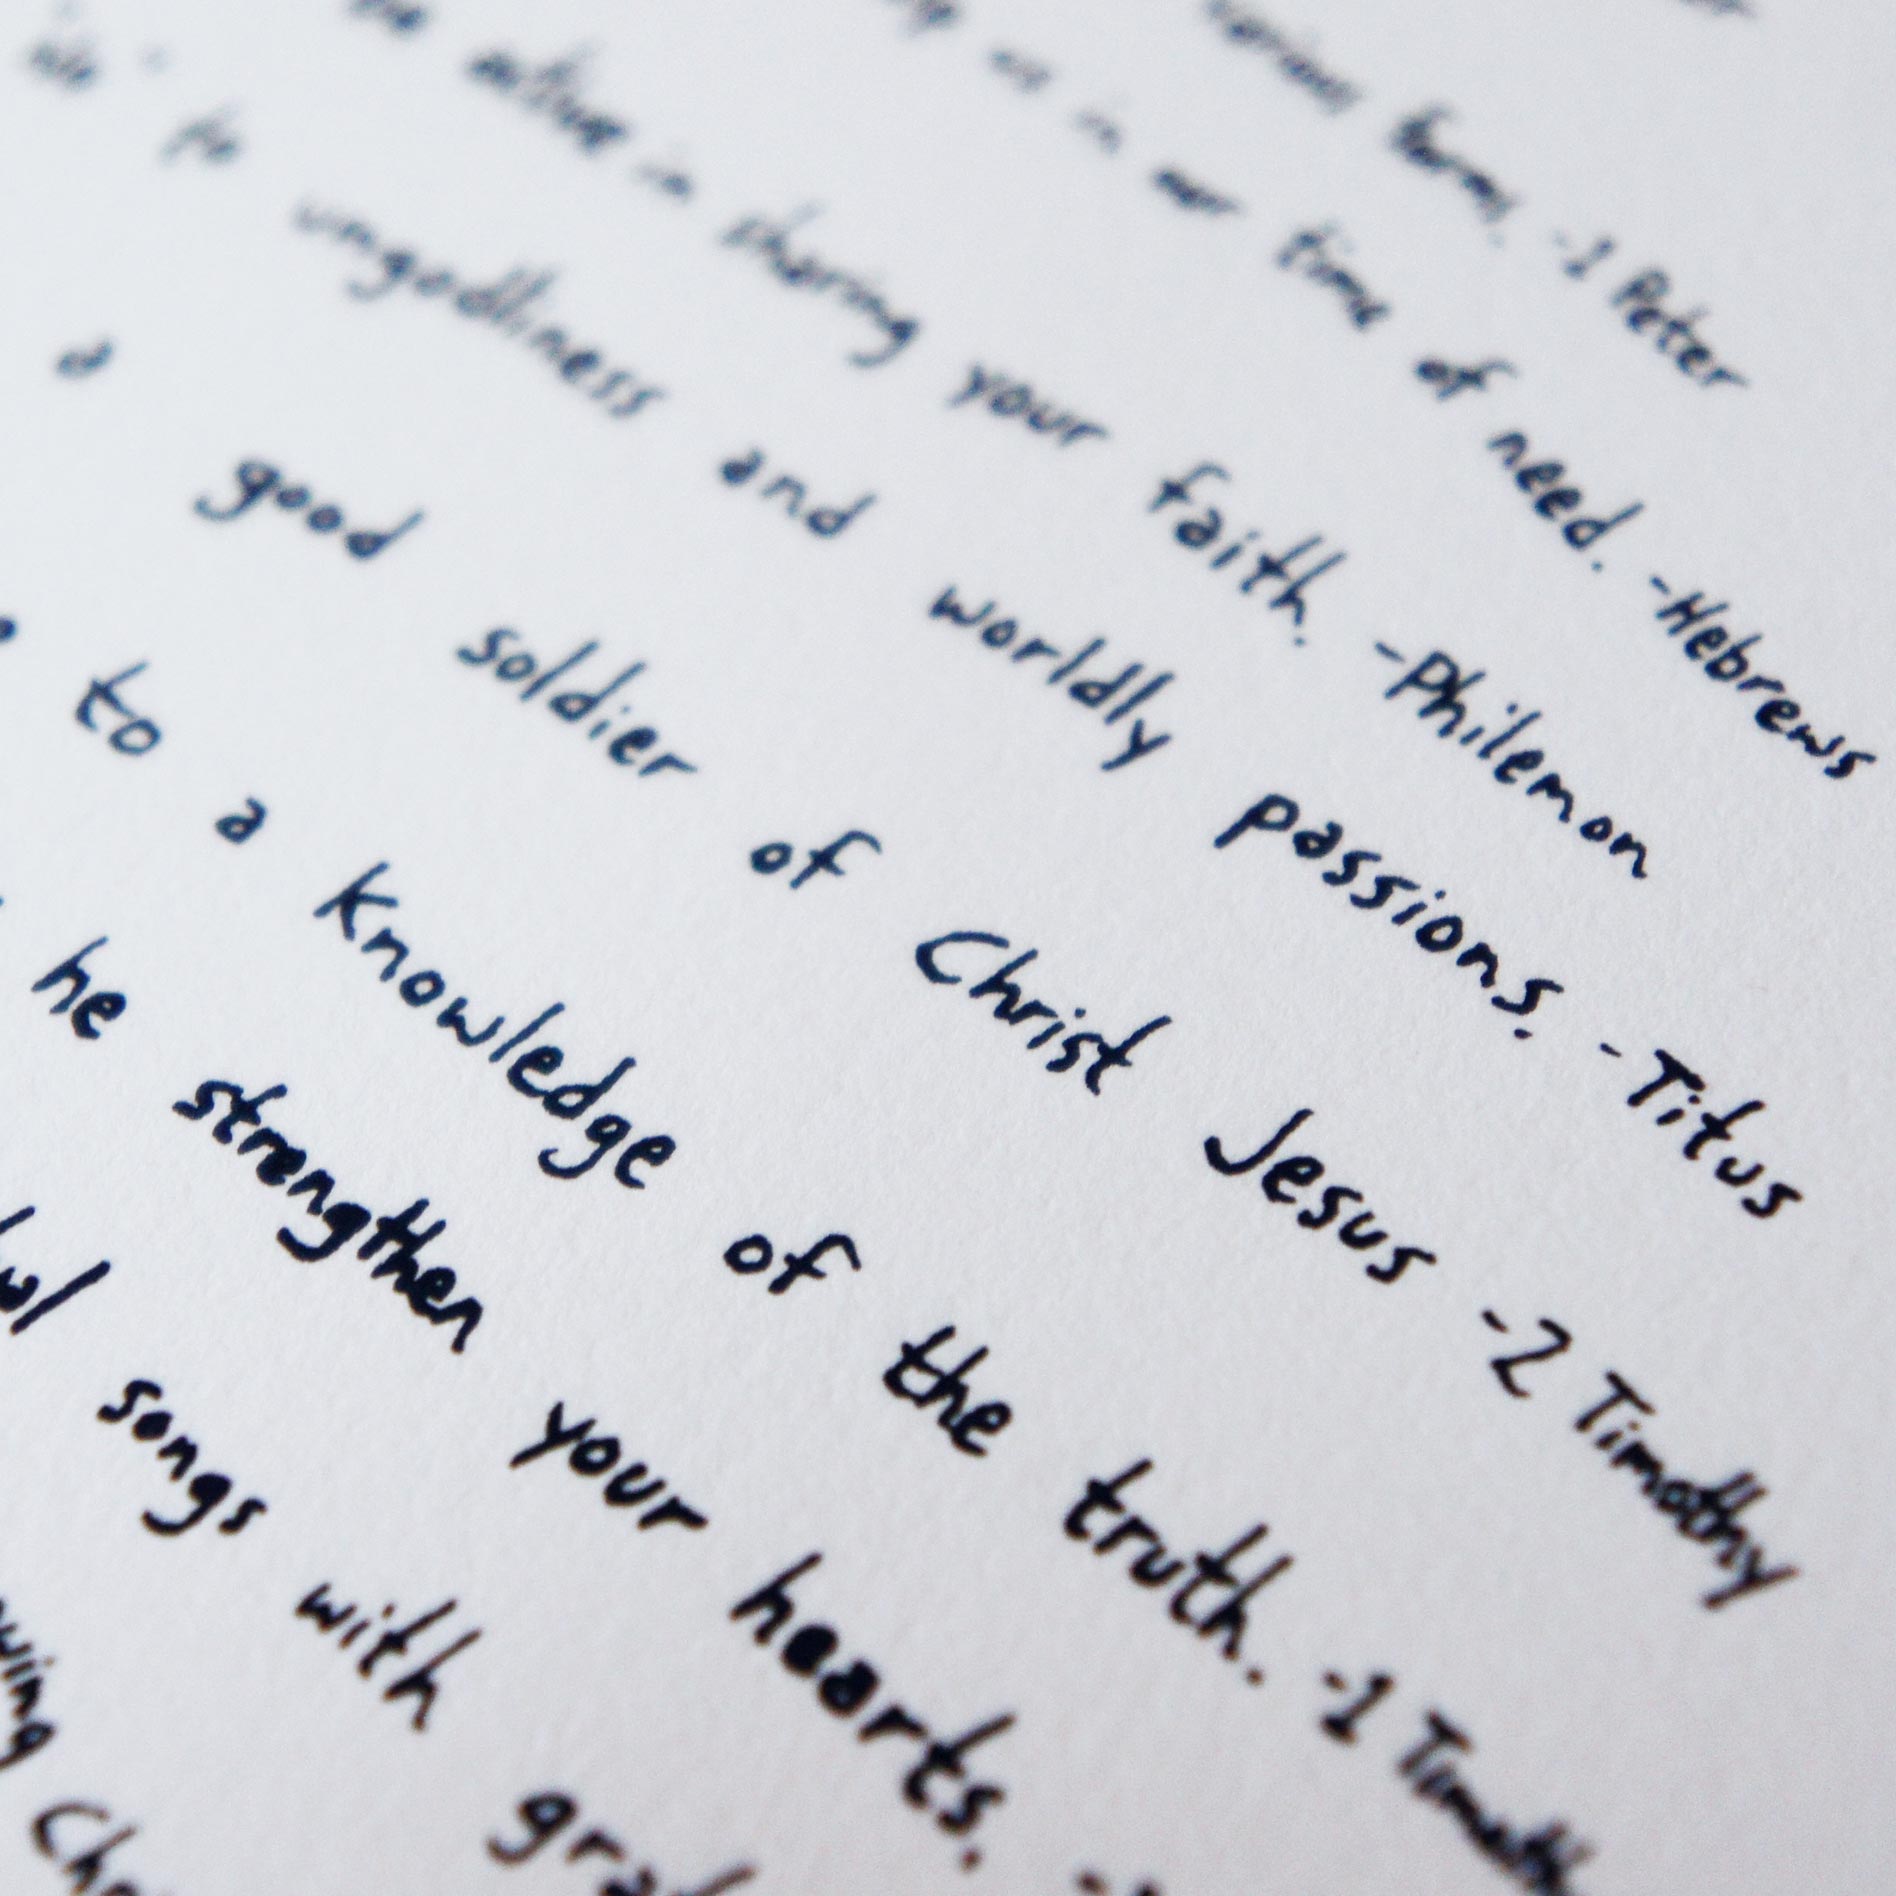 various forms. -1 Peter
us in our time of need. -Hebrews
be active in sharing your faith. -Philemon
to ungodliness and worldly passions. -Titus
a good soldier of Christ Jesus -2 Timothy
to a Knowledge of the truth. -1 Timoth
he strengthen your hearts.
songs with